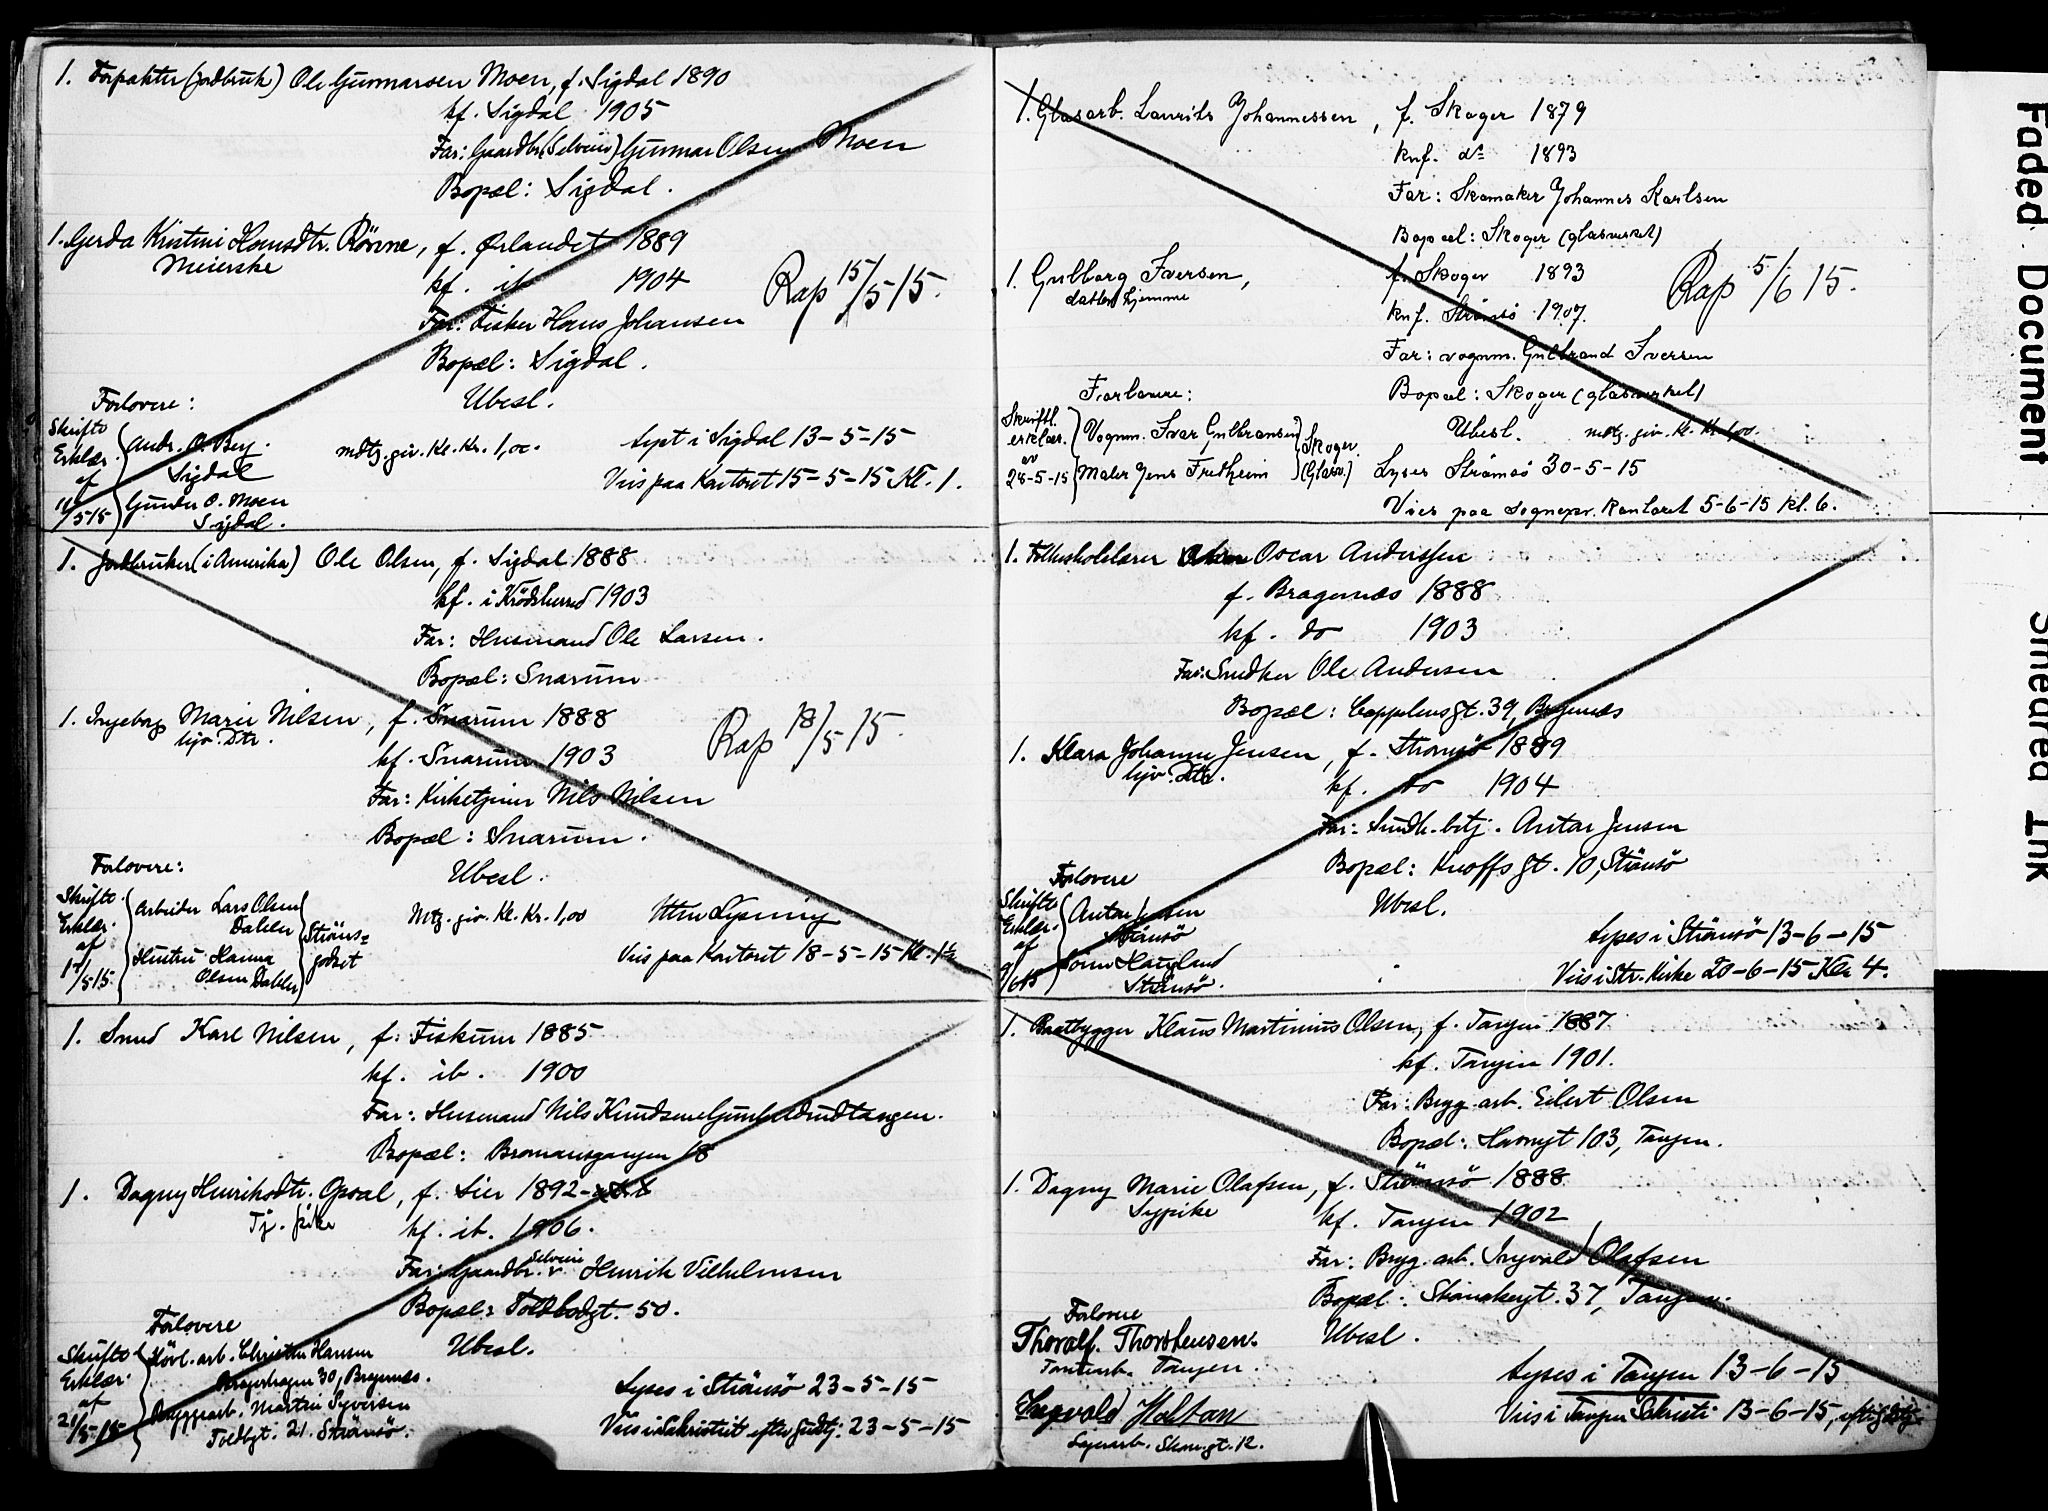 1. Forpakter (jordbruk) Ole Gunnarsen Moen, f. Sigdal 1890
kf. Sigdal 1905
Far: Gaardbr. (Selveier) Gunnar Olsen Moen
Bopæl: Sigdal.
1. Gerda Kristine Hansdtr. Rönne, f. Ørlandet 1889
Meierske
kf. ib 1904
Rap 15/5 15.
Far: Fisker Hans Johansen
Bopæl: Sigdal.
Ubesl.
Forlovere:
Skriftl. Erklær. af 11/5 15
Andr. O. Berg.
Sigdal
Gunder O. Moen
Sigdal.
mdtg. giv. Kl. Kr. 1,00.
Lyst i Sigdal 13-5-15
Vies paa Kontoret 15-5-15 Kl. 1.
1. Jordbruker (i Amerika) Ole Olsen, f. Sigdal 1888
kf. i Krödsherred 1903
Far: Husmand Ole Larsen.
Bopæl: Snarum
1. Ingeborg Marie Nilsen, f. Snarum 1888
hjv. Dtr.
kf. Snarum 1903
Rap 18/5 15.
Far: Kirketjener Nils Nilsen
Bopæl: Snarum.
Ubesl.
Forlovere:
Skriftl. Erklær. af 17/5 15
Arbeider Lars Olsen
Dahler
Hustru Hanna
Olsen Dahler
Ströms=
godset
Mtg. giv. Kl. Kr. 1,00
Uten Lysning
Vies paa Kontoret 18-5-15 Kl. 1½
1. Smed Karl Nilsen, f. Fiskum 1885
kf. ib. 1900
Far: Husmand Nils Knudsen
Bopæl: Bromansgangen 18
1. Dagny Henriksdtr. Opsal, f. Lier 1892
Tj. pike
kf. ib. 1906.
Far: Gaardbr. Selveier Henrik Vilhelmsen
Bopæl: Toldbodgt. 50.
Ubesl.
Forlovere
Skriftl. Erklær. af 21/5-15
Hövl. arb. Christian Hansen
Kragerhagen 30, Bragernæs.
Bryggearb. Martin Syversen
Toldbgt. 21. Strömsö.
Lyses i Strömsö 23-5-15
Vies i Sakristiet efter Gudtj. 23-5-15
1. Glasarb. Laurits Johannessen, f. Skoger 1879
knf. do 1893
Far: Skomaker Johannes Karlsen
Bopæl: Skoger (glasverket)
1. Gulborg Iversen, f. Skoger 1893
datter hjemme
knf. Strömsö 1907.
Rap 5/6 15.
Far: vognm. Gulbrand Iversen
Bopæl: Skoger (glasverket)
Forlovere:
Ubesl. mdtg. giv. Kl. Kr. 1,00.
Skriftl. erklær. av 28-5-15
Vognm. Ivar Gulbransen
Maler Jens Fredheim
Skoger
(Glasv.)
Lyses Strömsö 30-5-15
Vies paa Sognepr. kontoret 5-6-15 kl. 6.
1. Folkeskolelærer Oscar Anderssen
f. Bragernæs 1888
kf. do 1903
Far: Snedker Ole Andersen
Bopæl: Cappelens gt. 39, Bragernæs
1. Klara Johanne Jensen, f. Strömsö 1889
hjv. Dtr.
kf. do 1904
Far: Sundh. betj. Anton Jensen
Bopæl: Knoffs gt. 10, Strömsö
Ubesl.
Forlovere
Skriftl. Erklær. af 9/6 15
Anton Jensen
Strömsö
Haugland
Strömsö.
Lyses i Strömsö 13-6-15
Vies i Str. Kirke 20-6-15 Kl. 4.
1. Baatbygger Klaus Martinius Olsen, f. Tangen 1887
kf. Tangen 1901.
Far: Brygg. arb. Eilert Olsen
Bopæl: Havnegt 103, Tangen.
1. Dagny Marie Olafsen, f. Strömsö 1888
Sypike
kf. Tangen 1902
Far: Brygg. arb. Ingvald Olafsen
Bopæl: Skanskegt. 37, Tangen.
Ubesl.
Forlovere
Thoralf. Thorstensen.
Tangen.
Ingvald Holtan
Lagerarb. Skansgt. 12.
Lyses i Tangen 13-6-15
Vies i Tangen Sakristi 13-6-15,
Faded Document
Smeared Ink